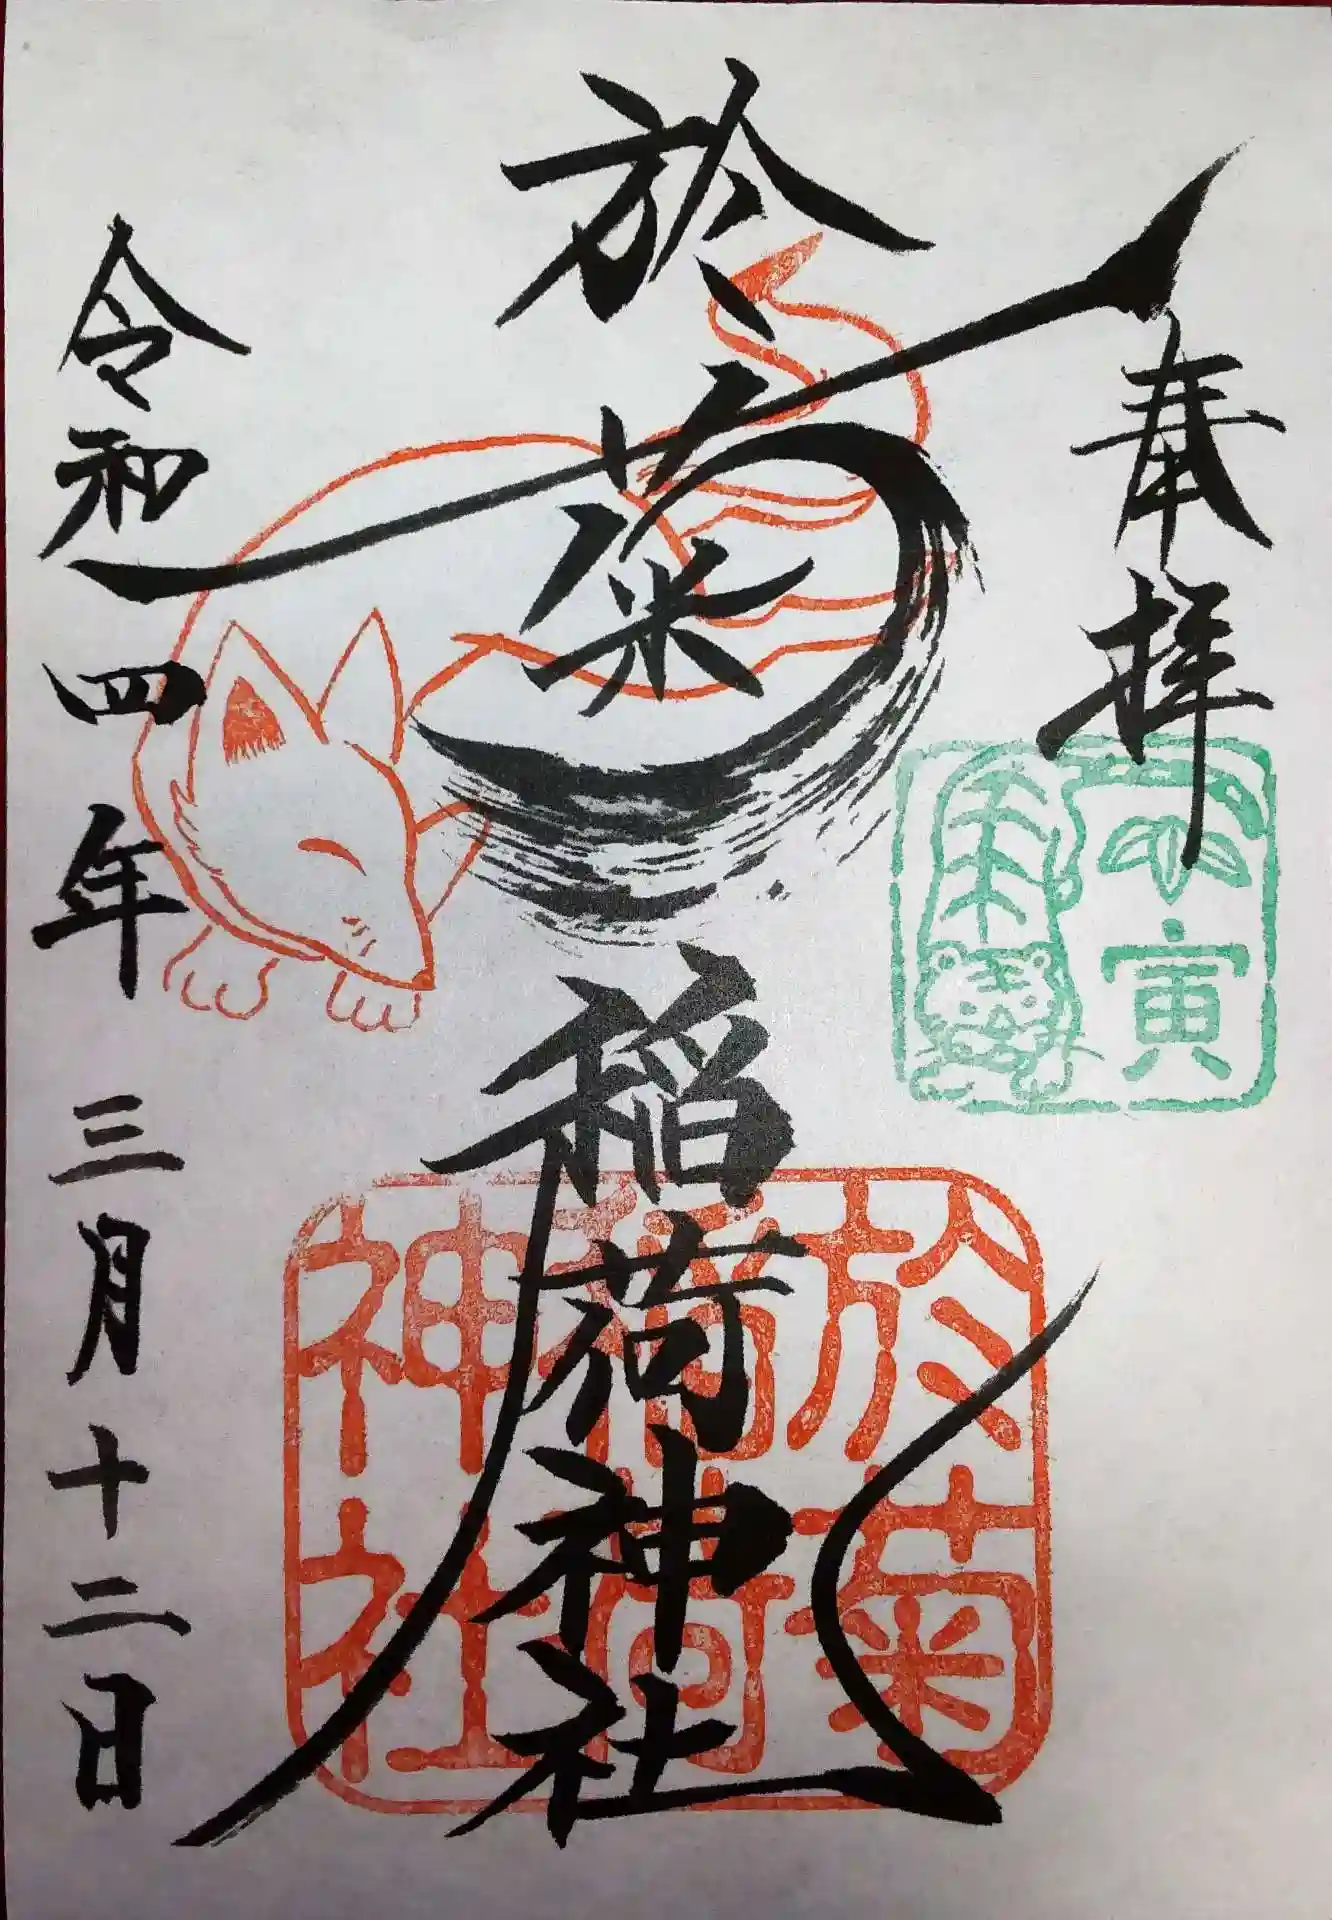 奉拝
寅
於菊稲荷神社
於菊
稲荷
神社
令和四年三月十二日